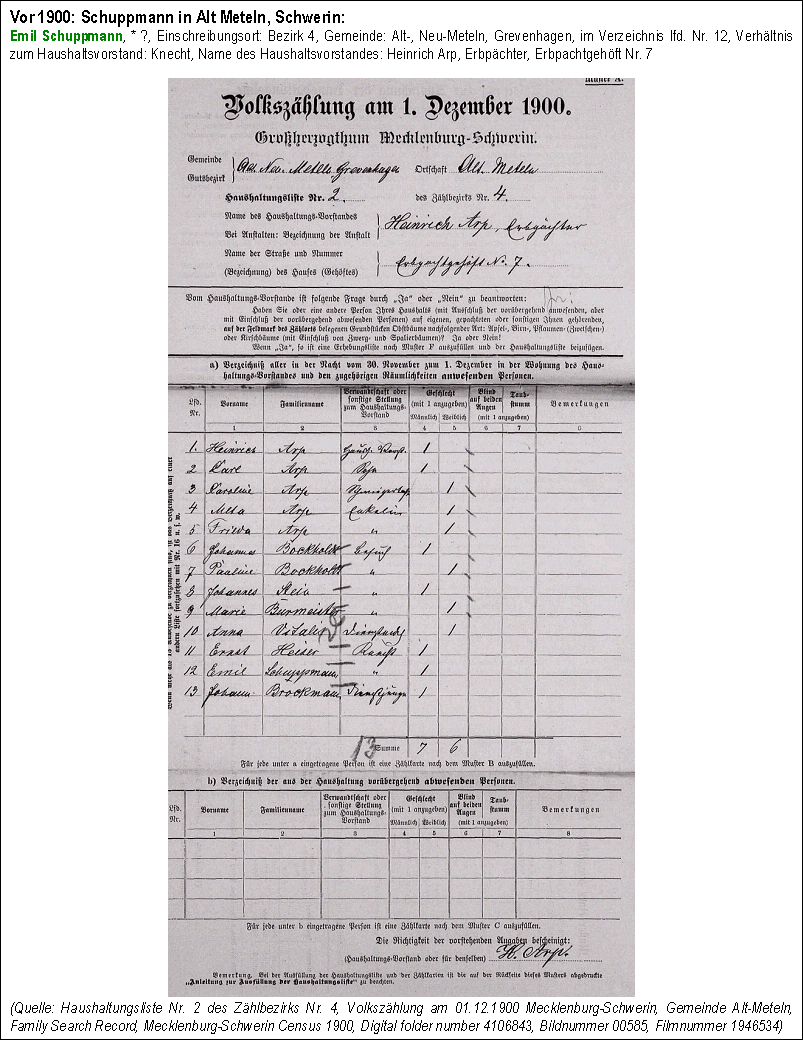 Vor 1900: Schuppmann in Alt Meteln, Schwerin:
Emil Schuppmann, * ?, Einschreibungsort: Bezirk 4, Gemeinde: Alt-, Neu-Meteln, Grevenhagen, im Verzeichnis lfd. Nr. 12, Verhältnis
zum Haushaltsvorstand: Knecht, Name des Haushaltsvorstandes: Heinrich Arp, Erbpächter, Erbpachtgehöft Nr. 7
Muster A.
Volkszählung am 1. Dezember 1900.
Großherzogthum Mecklenburg-Schwerin.
Gemeinde
Gutsbezirk
Neu Meteln Grevenhagen Ortschaft Alt Meteln
Haushaltungsliste Nr. 2 des Zählbezirks Nr. 4.
Name des Haushaltungs-Vorstandes
Bei Anstalten: Bezeichnung der Anstalt
Heinrich Arp, Erbpächter
Name der Straße und Nummer
(Bezeichnung) des Hauses (Gehöftes)
Erbpachtgehöft No. 7.
Vom Haushaltungs-Vorstande ist folgende Frage durch „Ja“ oder „Nein“ zu beantworten:
Haben Sie oder eine andere Person Ihres Haushalts (mit Ausschluß der vorübergehend anwesenden, aber
mit Einschluß der vorübergehend abwesenden Personen) auf eigenen, gepachteten oder sonstigen Ihnen gehörenden,
auf der Feldmark des Zählorts belegenen Grundstücken Obstbäume nachfolgender Art: Apfel-, Birn-, Pflaumen-(Zwetschen-)
oder Kirschbäume (mit Einschluß von Zwerg- und Spalierbäumen)? Ja oder Nein!
Wenn „Ja“, so ist eine Erhebungsliste nach Muster F auszufüllen und der Haushaltungsliste beizufügen.
a) Verzeichniß aller in der Nacht vom 30. November zum 1. Dezember in der Wohnung des Haus-
haltungs-Vorstandes und den zugehörigen Räumlichkeiten anwesenden Personen.
Lfd. Nr. Vorname Familienname Verwandtschaft oder sonstige Stellung zum Haushaltungs-Vorstand Geschlecht (mit 1 anzugeben) Männlich Weiblich Blind auf beiden Augen Taub-stumm (mit 1 anzugeben) Bemerkungen
1 2 3 4 5 6 7 8
1. Heinrich Arp Haush. Vorst. 1
2 Carl Arp Sohn 1
3 Karoline Arp 1
4 Meta Arp Enkelin 1
5 Frieda Arp " 1
6 Johannes Bockholdt Besuch 1
7 Pauline Bockholdt " 1
8 Johannes Stein " 1
9 Marie Burmeister " 1
10 Anna Vitalis 1
11 Ernst Heiser Knecht 1
12 Emil Schuppmann " 1
13 Johann Brockmann Dienstjunge 1
13 Summe 7 6
Für jede unter a eingetragene Person ist eine Zählkarte nach dem Muster B auszufüllen.
b) Verzeichniß der aus der Haushaltung vorübergehend abwesenden Personen.
Lfd. Nr. Vorname Familienname Verwandtschaft oder sonstige Stellung zum Haushaltungs-Vorstand Geschlecht (mit 1 anzugeben) Männlich Weiblich Blind auf beiden Augen Taub-stumm (mit 1 anzugeben) Bemerkungen
1 2 3 4 5 6 7 8
Für jede unter b eingetragene Person ist eine Zählkarte nach dem Muster C auszufüllen.
Die Richtigkeit der vorstehenden Angaben bescheinigt:
(Haushaltungs-Vorstand oder für denselben) H. Arp.
Bemerkung. Bei der Ausfüllung der Haushaltungsliste und der Zählkarten ist die auf der Rückseite dieses Musters abgedruckte
„Anleitung zur Ausfüllung der Haushaltungsliste“ zu beachten.
(Quelle: Haushaltungsliste Nr. 2 des Zählbezirks Nr. 4, Volkszählung am 01.12.1900 Mecklenburg-Schwerin, Gemeinde Alt-Meteln,
Family Search Record, Mecklenburg-Schwerin Census 1900, Digital folder number 4106843, Bildnummer 00585, Filmnummer 1946534)